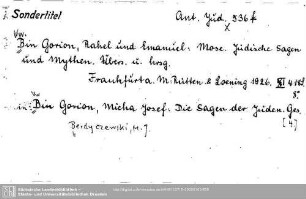 Sondertitel
Ant. Jüd. 536 f
x
Vw.
Bin Gorion, Rahel und Emanuel: Mose. Jüdische Sagen
und Mythen. Übers. u. hrsg.
Frankfurt a. M. Rütten & Loening 1926. XI
8°.
Vw
in: Bin Gorion, Micha Josef. Die Sagen der Juden. Ges.
[4]
Berdyczewski, M. J.
Sächsische Landesbibliothek -
Staats- und Universitätsbibliothek Dresden